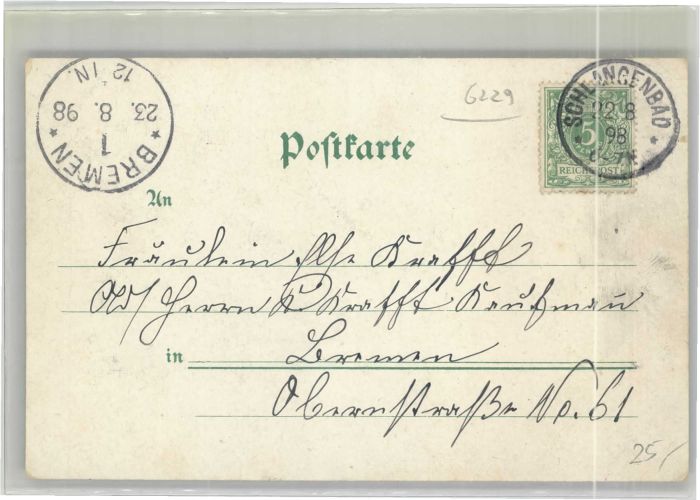 BREMEN
1
23. 8. 98
12 1N.
6229
SCHLANGENBAD
22.8
98
6-7N
5
REICHSPOST
Postkarte
An
Fräulein Else Krafft
Ad/ Herrn K. Krafft Kaufman
in Bremen
Obernstraße No. 61
25,